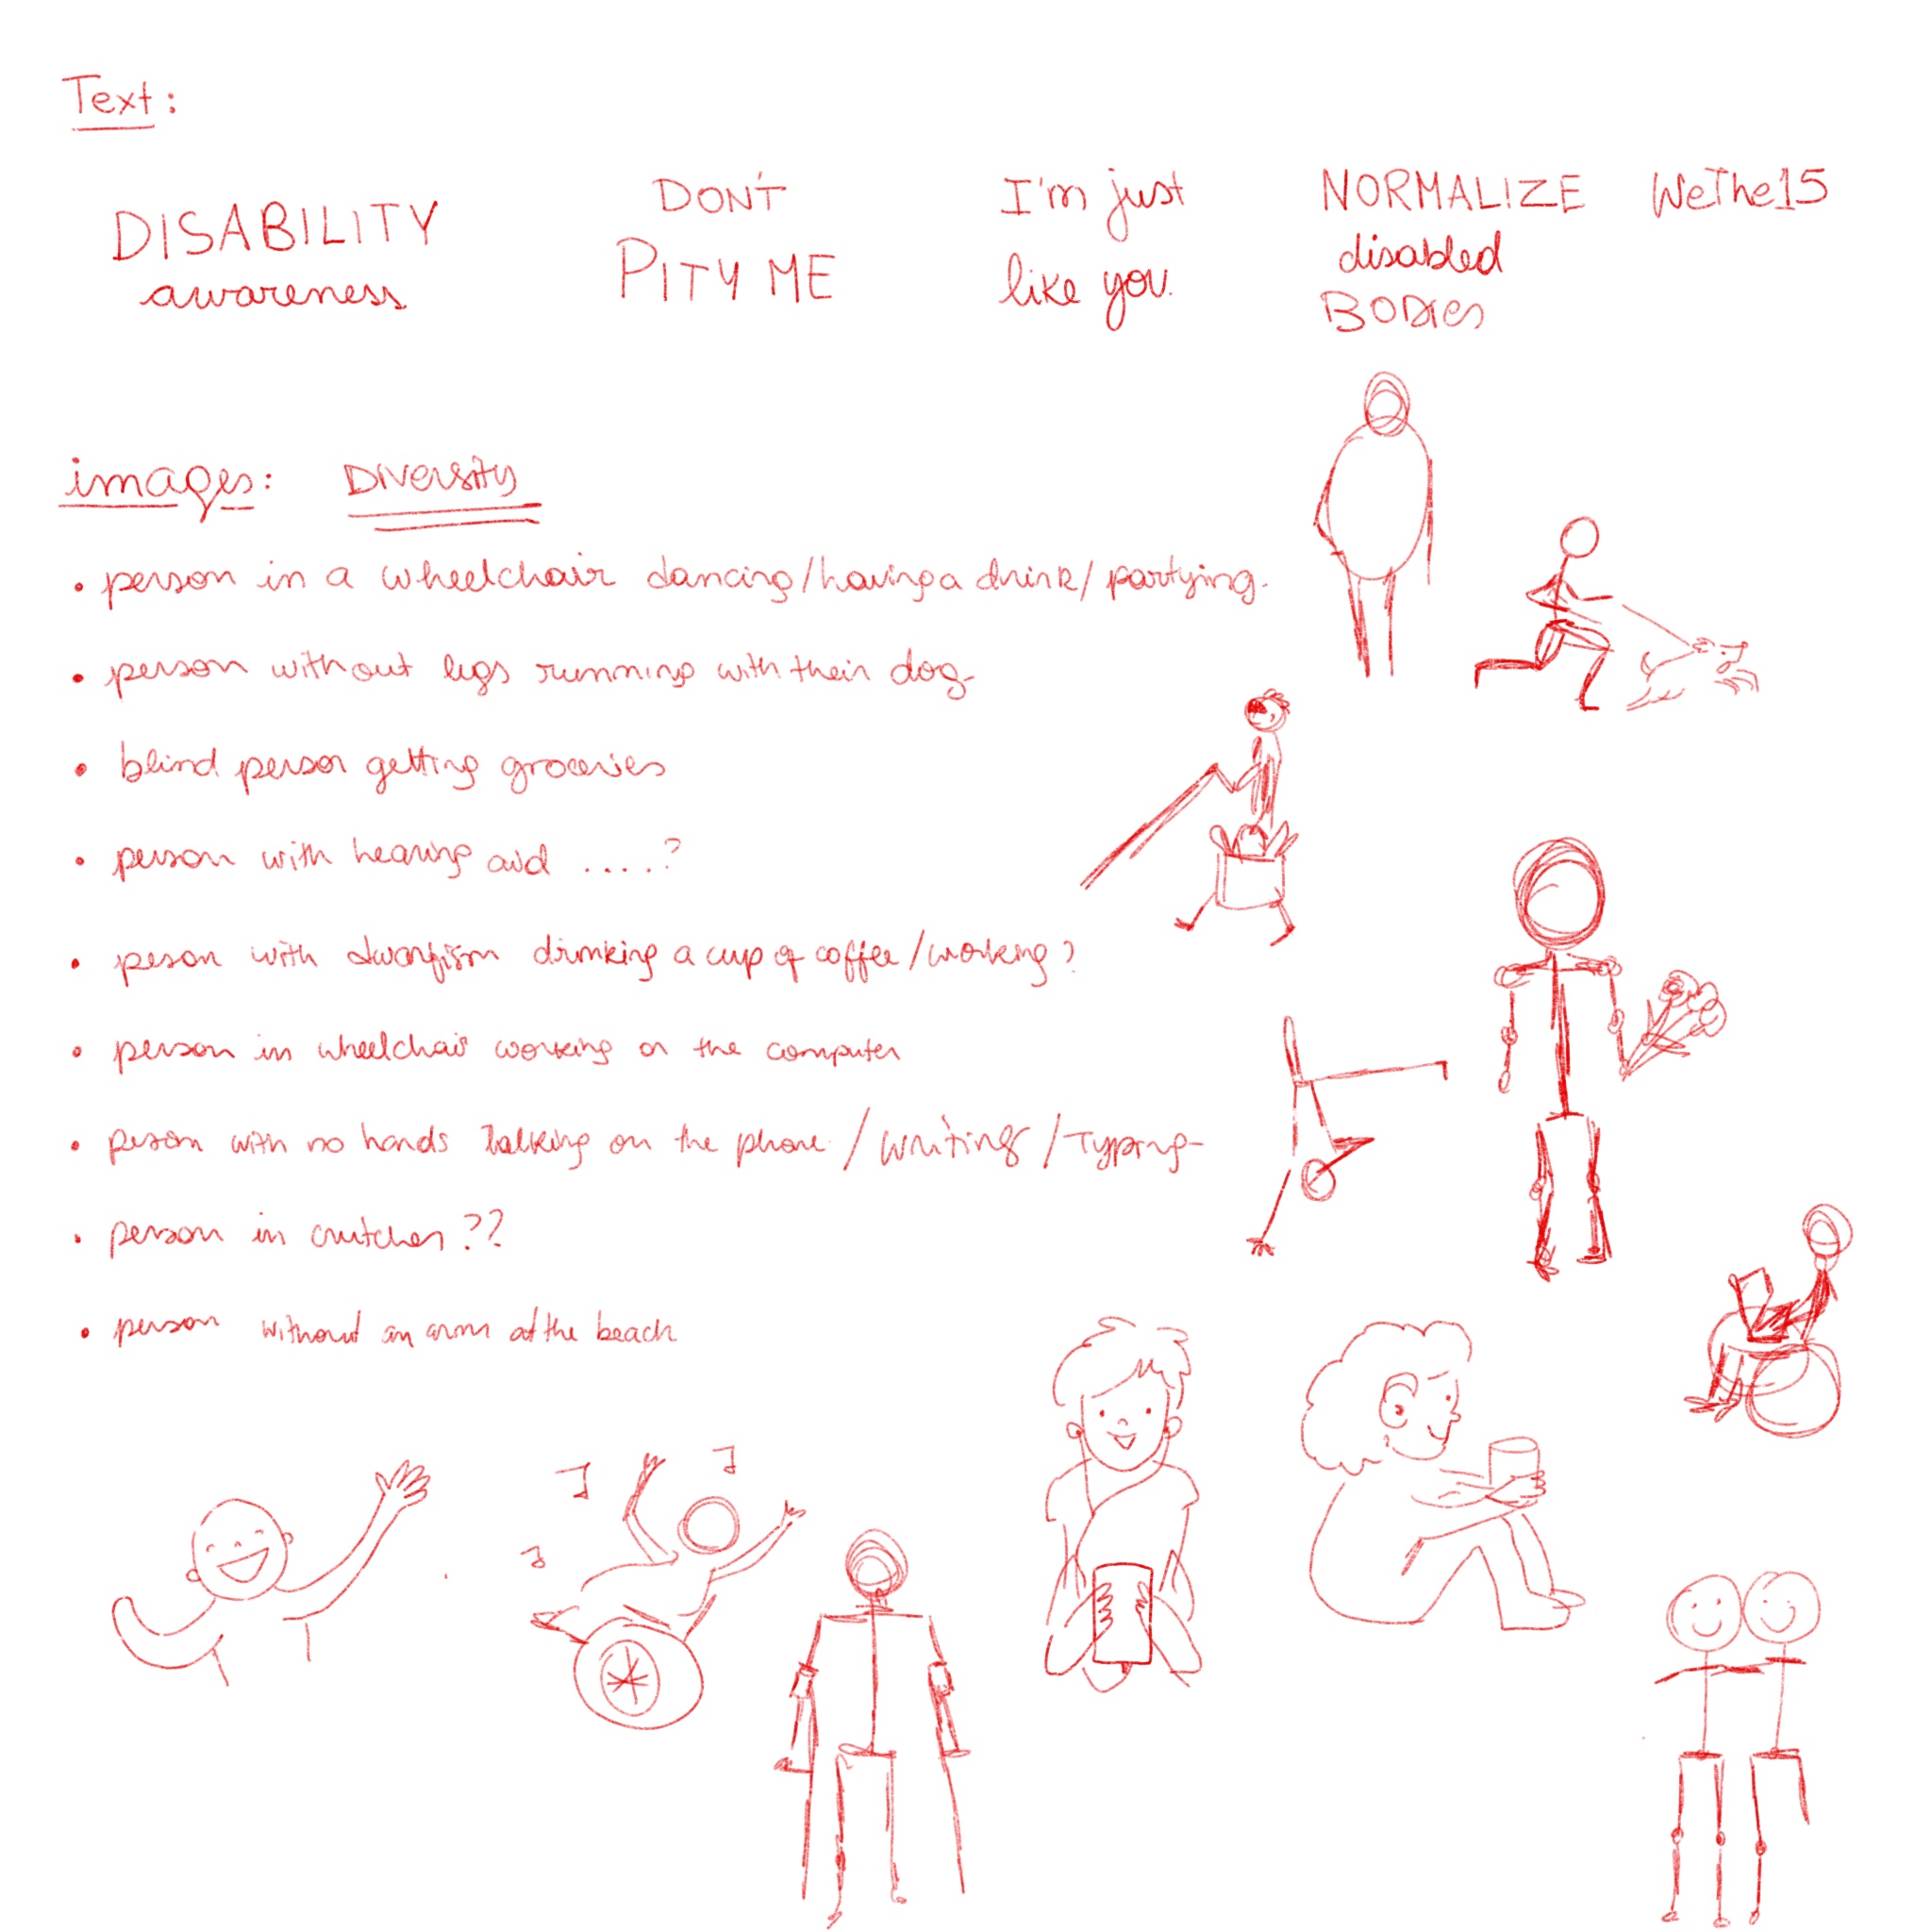 Text:
DISABILITY
awareness
DON'T
PITY ME
I'm just
like you.
NORMALIZE
disabled
BODIES
WeThe15
images: DIVERSITY
• person in a wheelchair dancing/having a drink/partying.
• person without legs running with their dog
• blind person getting groceries
• person with hearing aid ....?
• peson with dwarfism drinking a cup of coffee/working?
• person in wheelchair working on the computer
• person with no hands talking on the phone/writing/Typing
• person in crutches??
• person without an arm at the beach